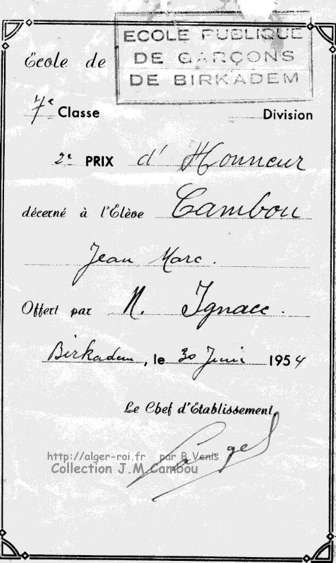 ECOLE PUBLIQUE
DE GARÇONS
DE BIRKADEM
Ecole de
7e Classe Division
2e PRIX d'Honneur
décerné à l'Elève Cambou
Jean Marc.
Offert par M. Ignace.
Birkadem, le 30 Juin 1954
Le Chef d'Etablissement
http://alger-roi.fr par B.Venis
Collection J.M.Cambou